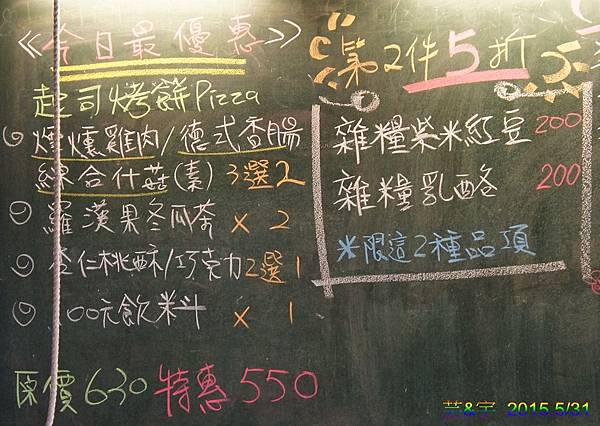 《今日最優惠》
起司烤餅Pizza
煙燻雞肉/德式香腸
綜合什菇(素) 3選2
羅漢果冬瓜茶 x 2
杏仁桃酥/巧克力2選1
100元飲料 x 1
原價630 特惠550
第2件5折
雜糧紫米紅豆 200
雜糧乳酪 200
*限這2種品項
2015 5/31